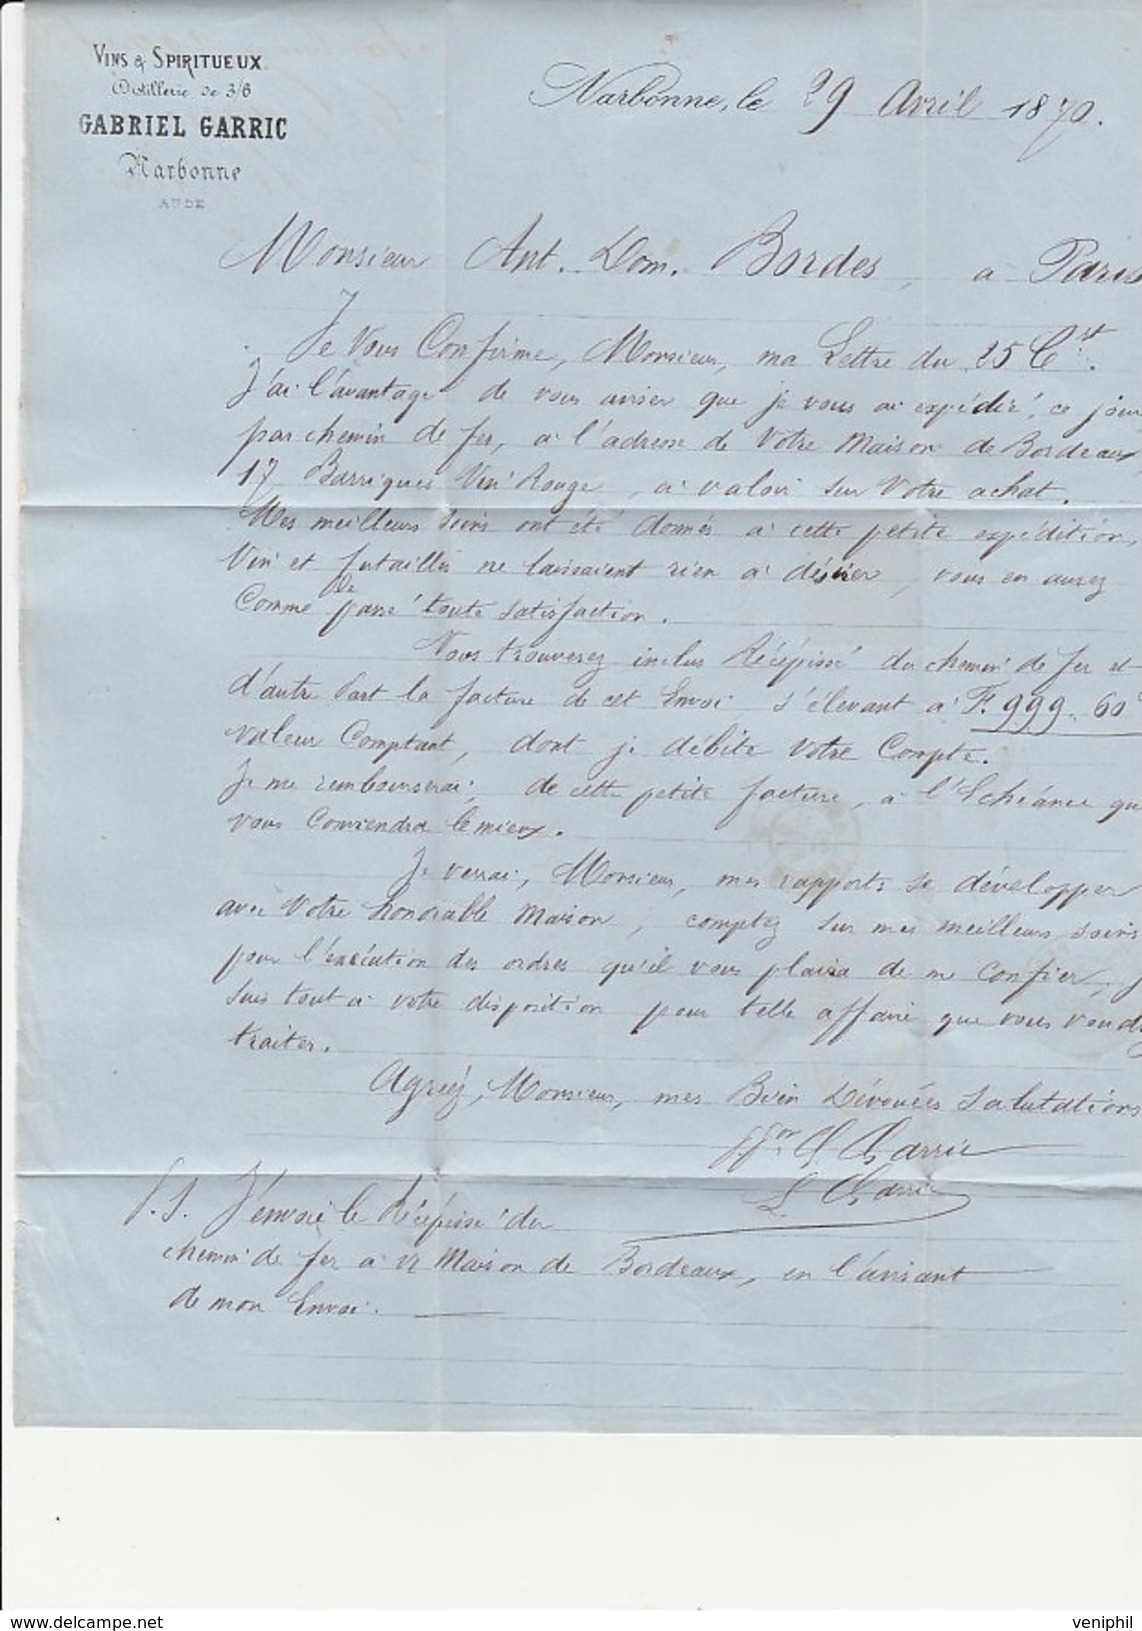 VINS & SPIRITUEUX
Distillerie de 3/6
GABRIEL GARRIC
Narbonne
AUDE
Narbonne, le 29 Avril 1870.
Monsieur Ant. Dom. Bordes, a Paris
Je Vous Confirme, Monsieur, ma Lettre du 25 Ct.
J'ai l'avantage de vous aviser que je vous ai expédié, ce jour
par chemin de fer, a l'adresse de Votre Maison de Bordeaux
17 Barriques Vin Rouge, a valoir sur Votre achat.
Mes meilleurs Soins ont été donnés a cette petite expédition,
Vin et futailles ne laissaient rien a désirer, vous en aurez
Comme par le passé toute satisfaction.
Vous trouverez inclus Récépissé du chemin de fer et
d'autre Part la facture de cet Envoi s'élevant a F. 999. 60
valeur Comptant, dont je débite votre Compte.
Je me rembourserai, de cette petite facture, a l'Echéance qui
vous Conviendra le mieux.
Je verrai, Monsieur, mes rapports se développer
avec Votre honorable Maison, comptez sur mes meilleurs soins
pour l'exécution des ordres qu'il vous plaira de me Confier, j
suis tout a votre disposition pour telle affaire que vous voudrez
traiter.
Agréez, Monsieur, mes Bien Dévouées Salutations
G Garric
L. Garric
P.S. J'envoie le Récépissé du
chemin de fer a Vr Maison de Bordeaux, en l'avisant
de mon Envoi.
veniphil
www.delcampe.net